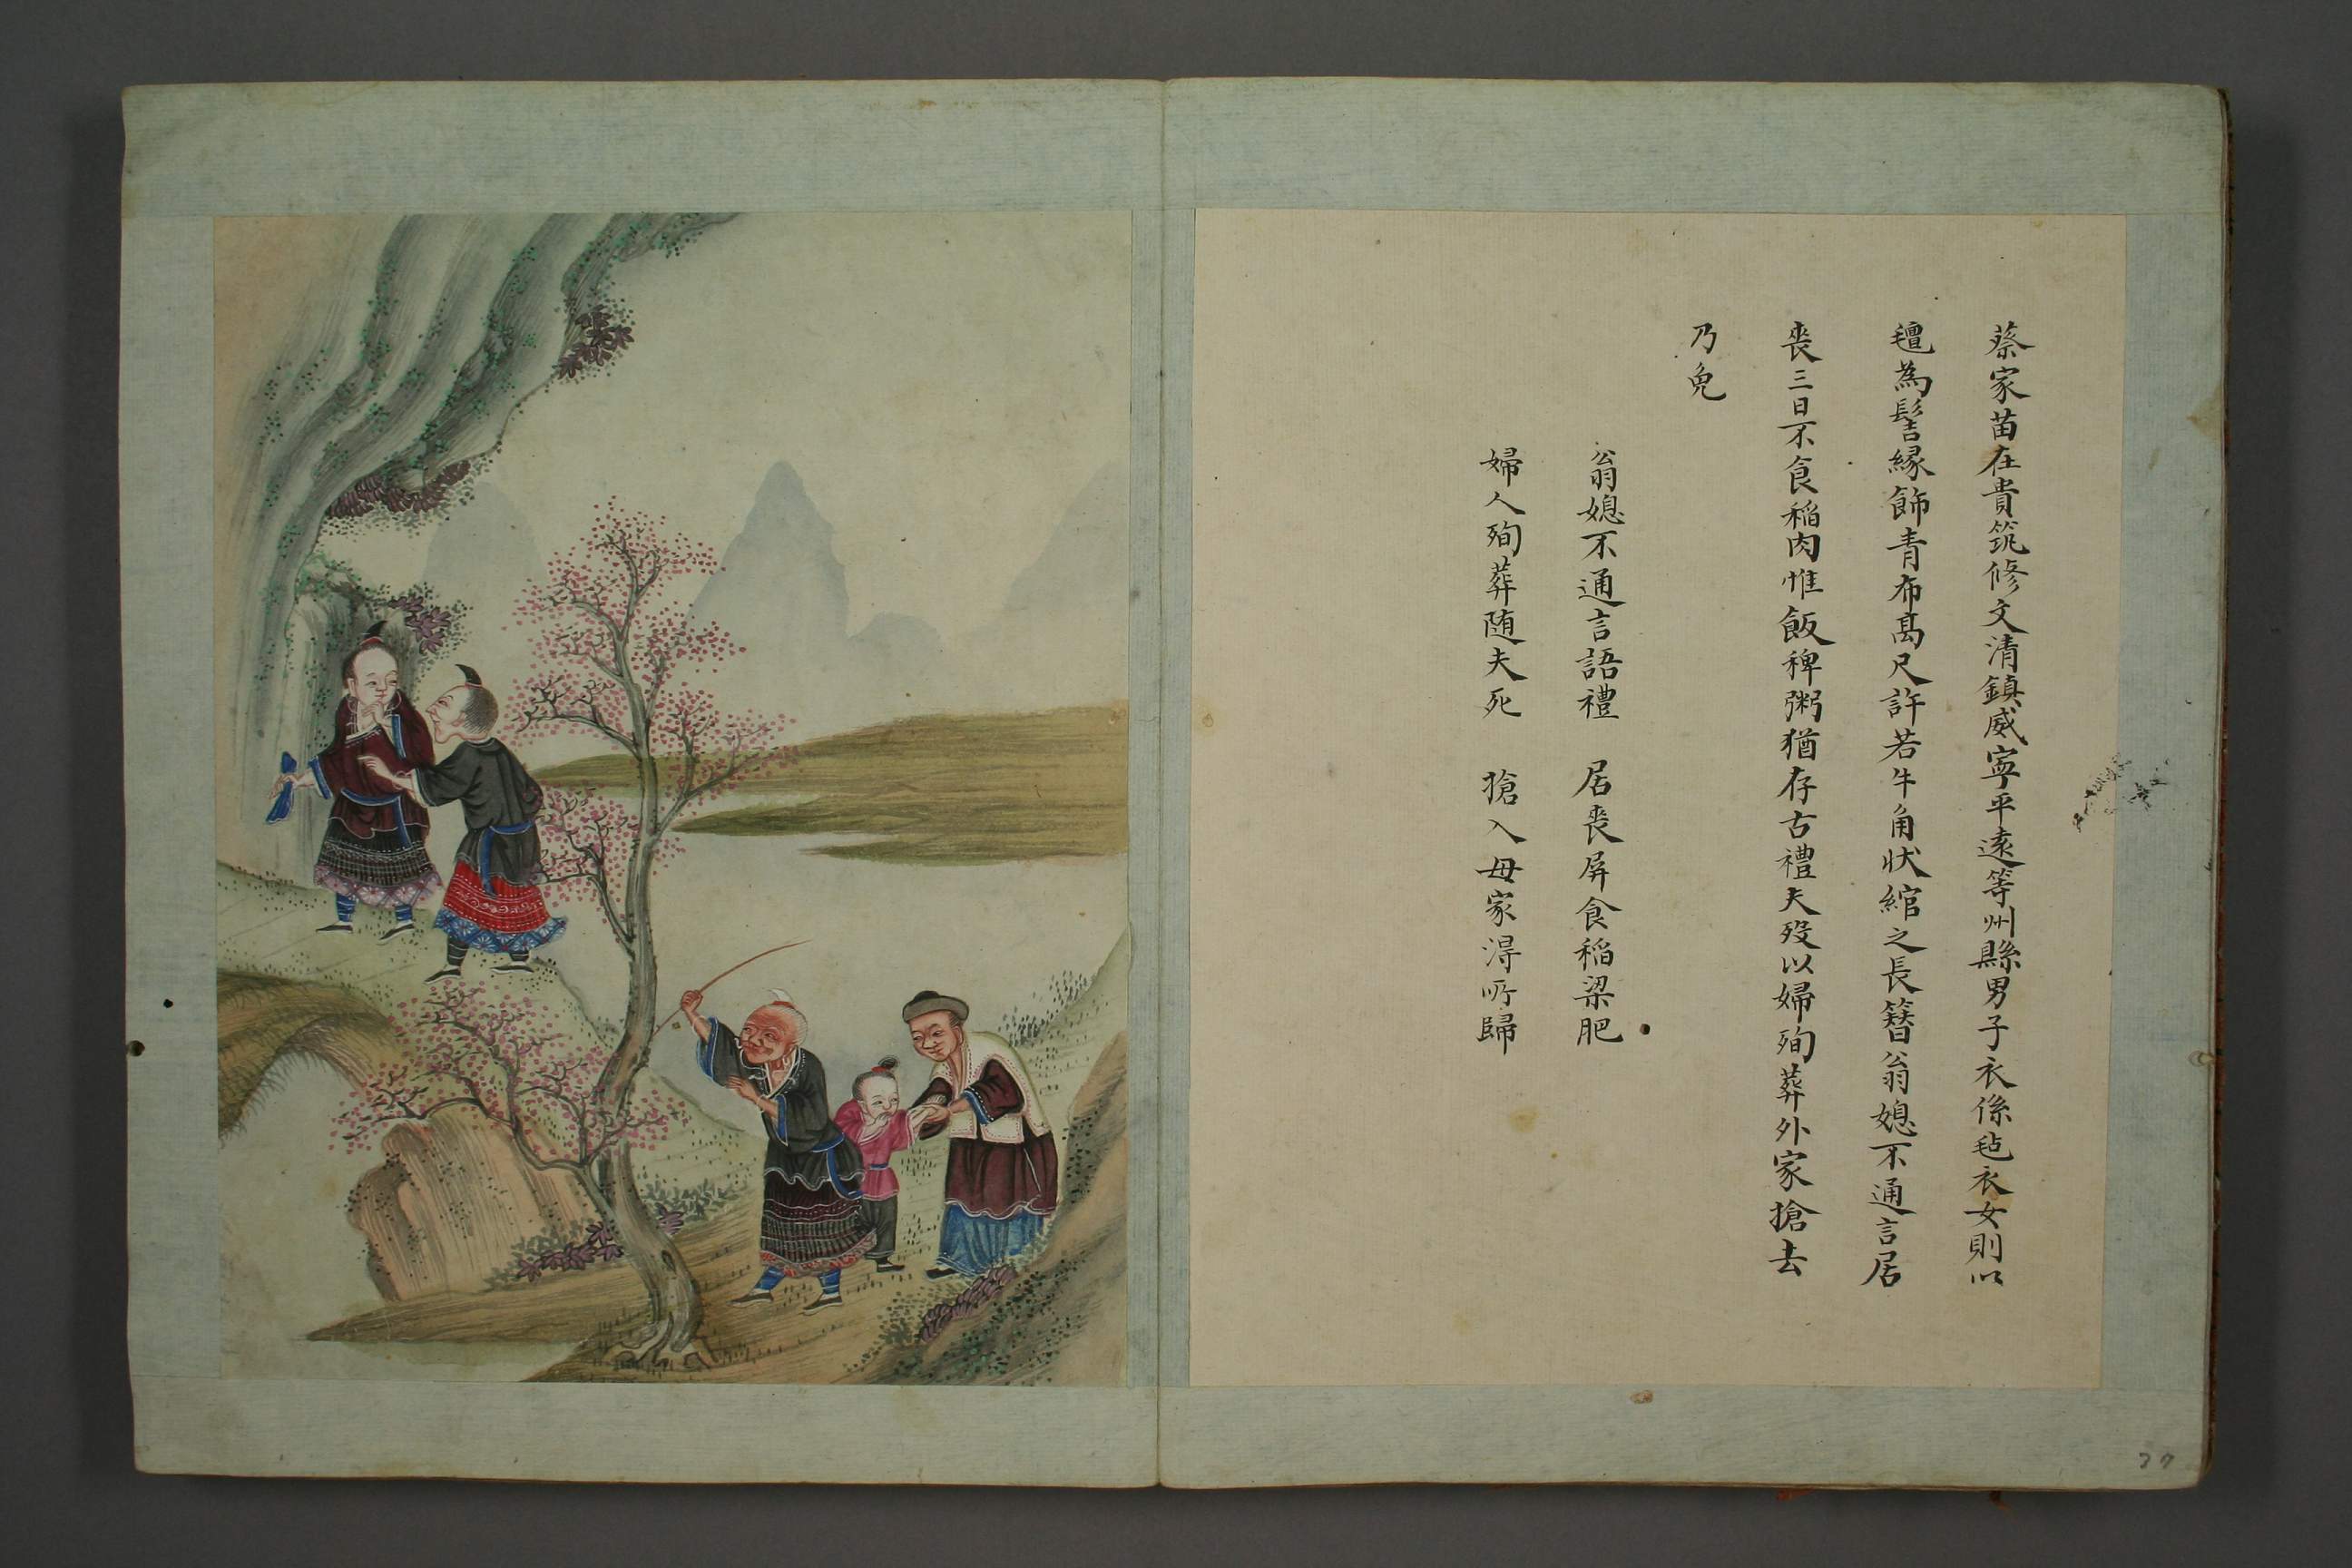 蔡家苗在貴筑修文清鎮威寧平遠等州縣男子衣係毡衣女則以
氊為髻緣飾青布高尺許若牛角狀綰之長簪翁媳不通言居
喪三日不食稻肉惟飯稗粥猶存古禮夫歿以婦殉葬外家搶去
乃免
翁媳不通言語禮　居喪屏食稻粱肥
婦人殉葬随夫死　搶入母家得所歸
77